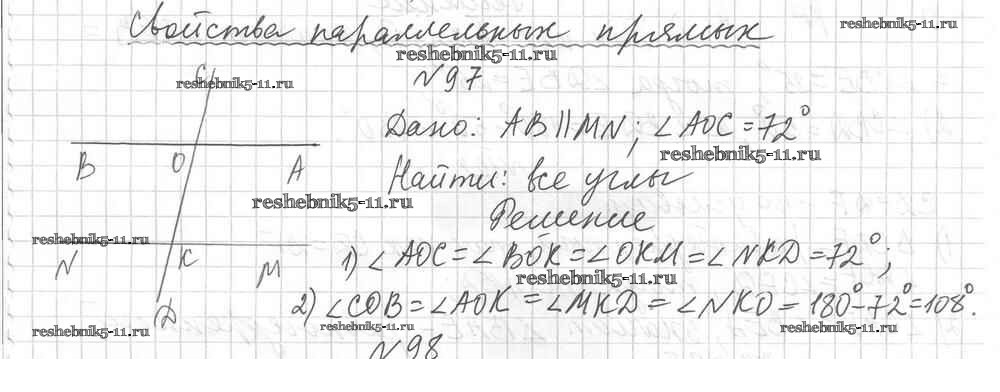 Свойства параллельных прямых
reshebnik5-11.ru
reshebnik5-11.ru
reshebnik5-11.ru
№97
C
Дано: AB∥MN; ∠AOC=72°
reshebnik5-11.ru
B O A
Найти: все углы
reshebnik5-11.ru
Решение
reshebnik5-11.ru
N K M
1) ∠AOC=∠BOK=∠OKM=∠NKD=72°;
reshebnik5-11.ru
D
2) ∠COB=∠AOK=∠MKD=∠NKO=180°-72°=108°.
reshebnik5-11.ru
reshebnik5-11.ru
reshebnik5-11.ru
№98